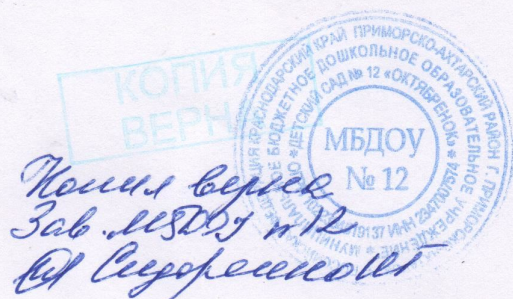 КОПИЯ
ВЕРНА
КРАСНОДАРСКИЙ КРАЙ ПРИМОРСКО-АХТАРСКИЙ РАЙОН Г. ПРИМОРСКО
БЮДЖЕТНОЕ ДОШКОЛЬНОЕ ОБРАЗОВАТЕЛЬНОЕ УЧРЕЖДЕНИЕ
ДЕТСКИЙ САД № 12 «ОКТЯБРЁНОК»
МБДОУ
№ 12
Копия верна
Зав. МБДОУ № 12
Сидоренко